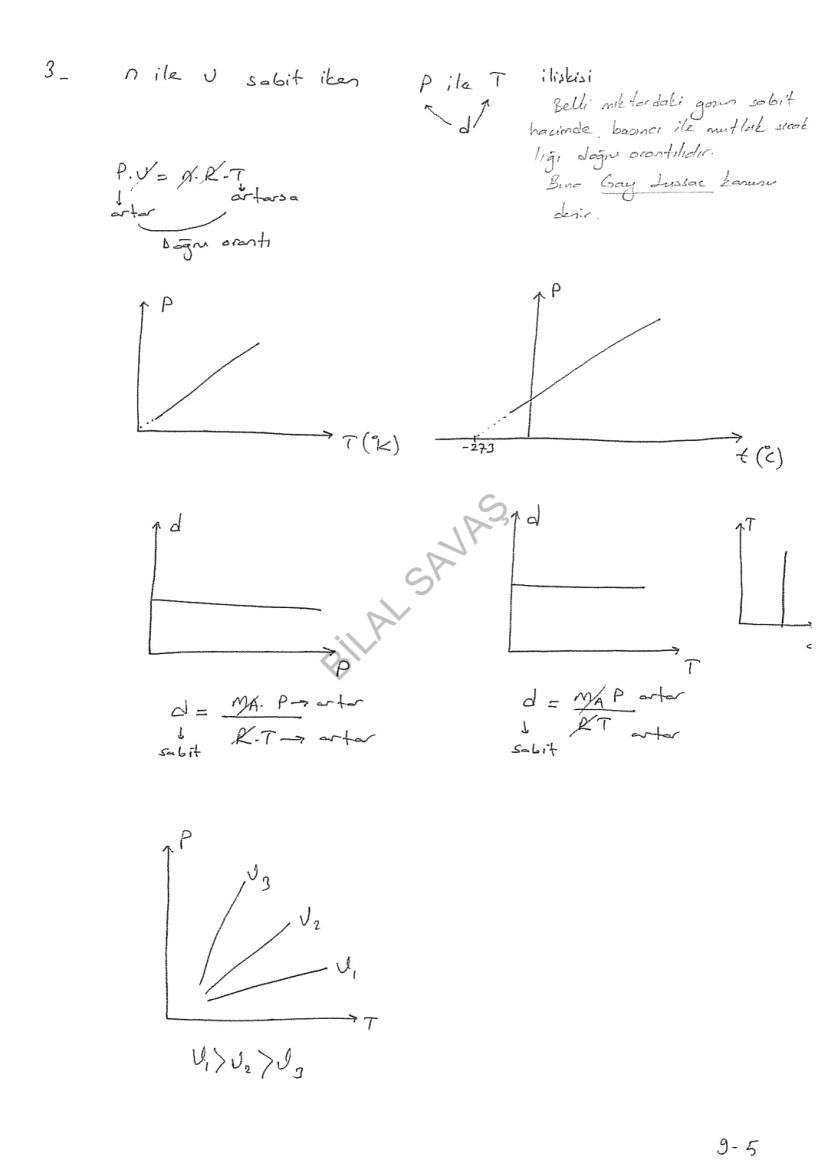 3_ n ile V sabit iken P ile T ilişkisi
d
Belli miktardaki gazın sabit
hacimde, basıncı ile mutlak sıcak
lığı doğru orantılıdır.
Buna Gay Lussac kanunu
denir.
P.V = n.R.T
artar artarsa
Doğru orantı
P
T(°K)
P
-273
t(°C)
d
P
d
T
T
d = MA. P → artar
R.T → artar
sabit
d = MA P artar
RT artar
sabit
BİLAL SAVAŞ
P
V3
V2
V1
T
V1 > V2 > V3
9-5